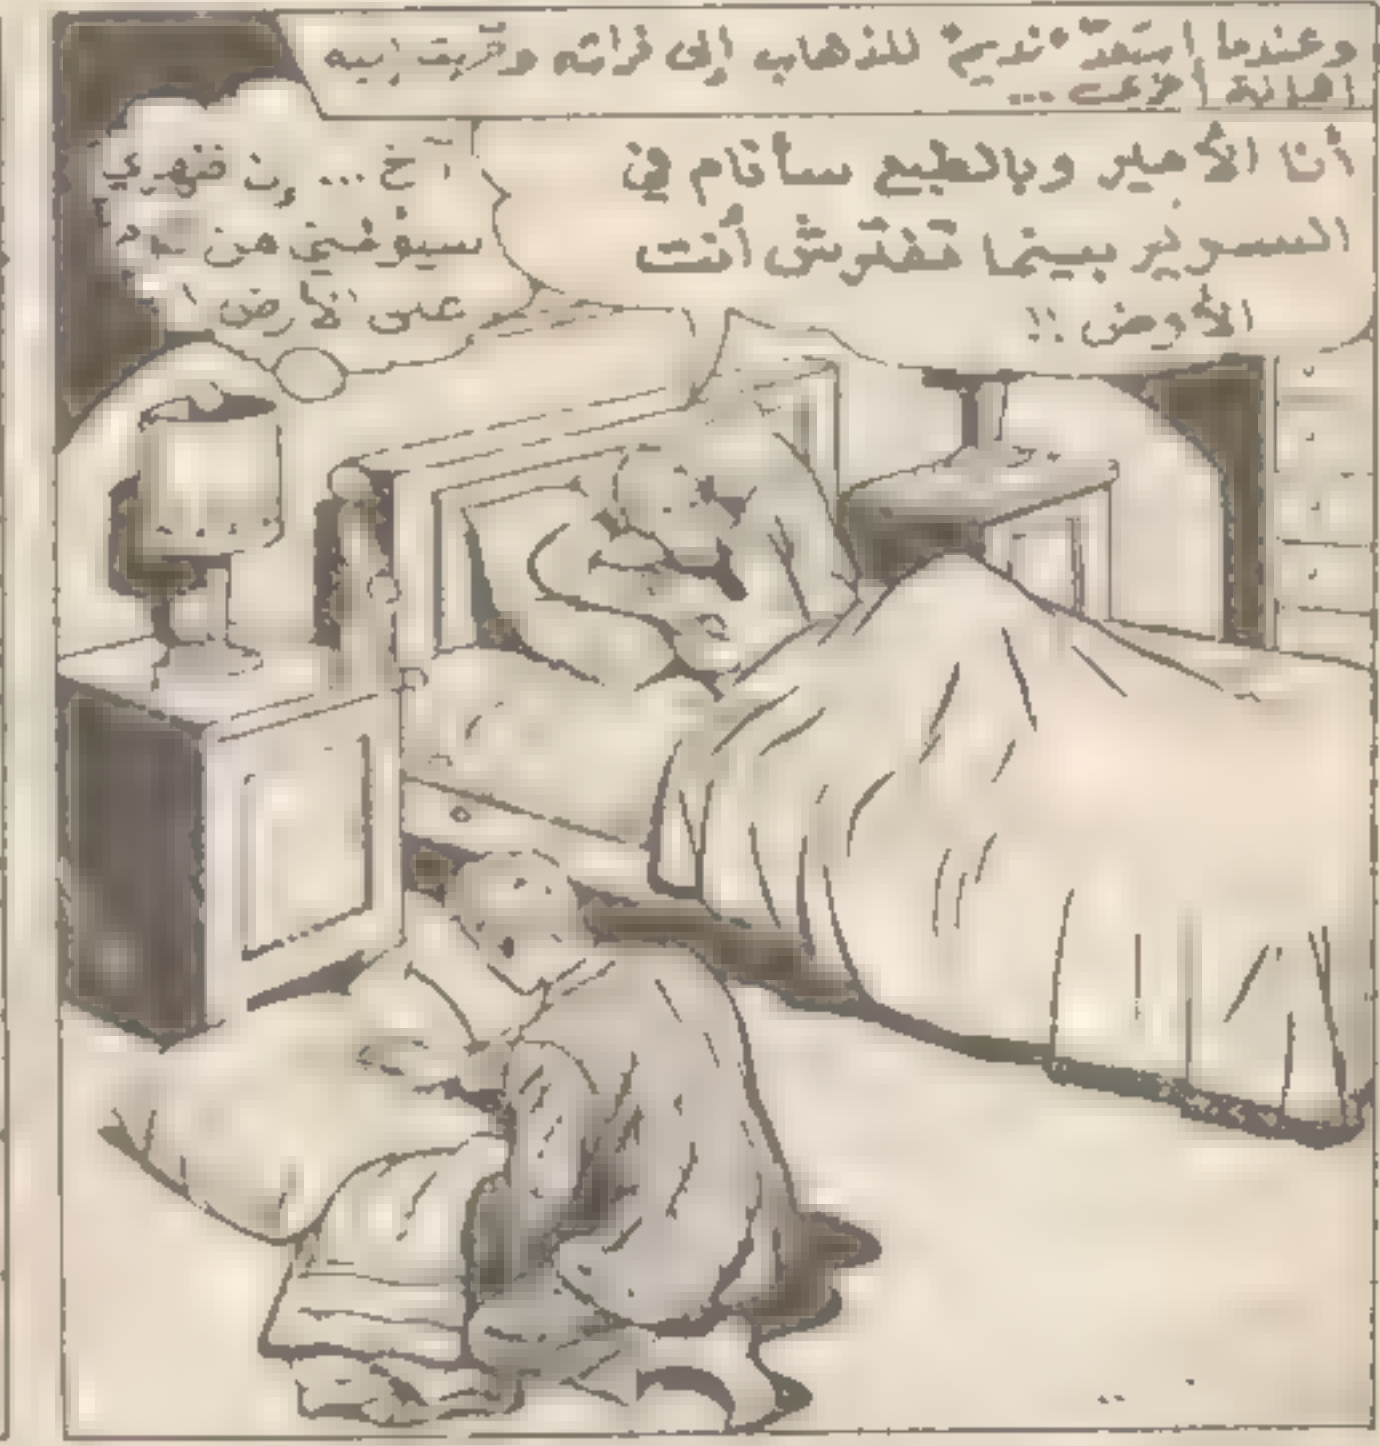 وعندما استعدّ "نديم" للذهاب إلى فراشه وجّهت إليه
اهانة أخرى ...
أنا الأمير وبالطبع سأنام في
السرير بينما تفترش أنت
الأرض !!
آخ ... إن ظهري
سيؤلمني من
على الأرض !